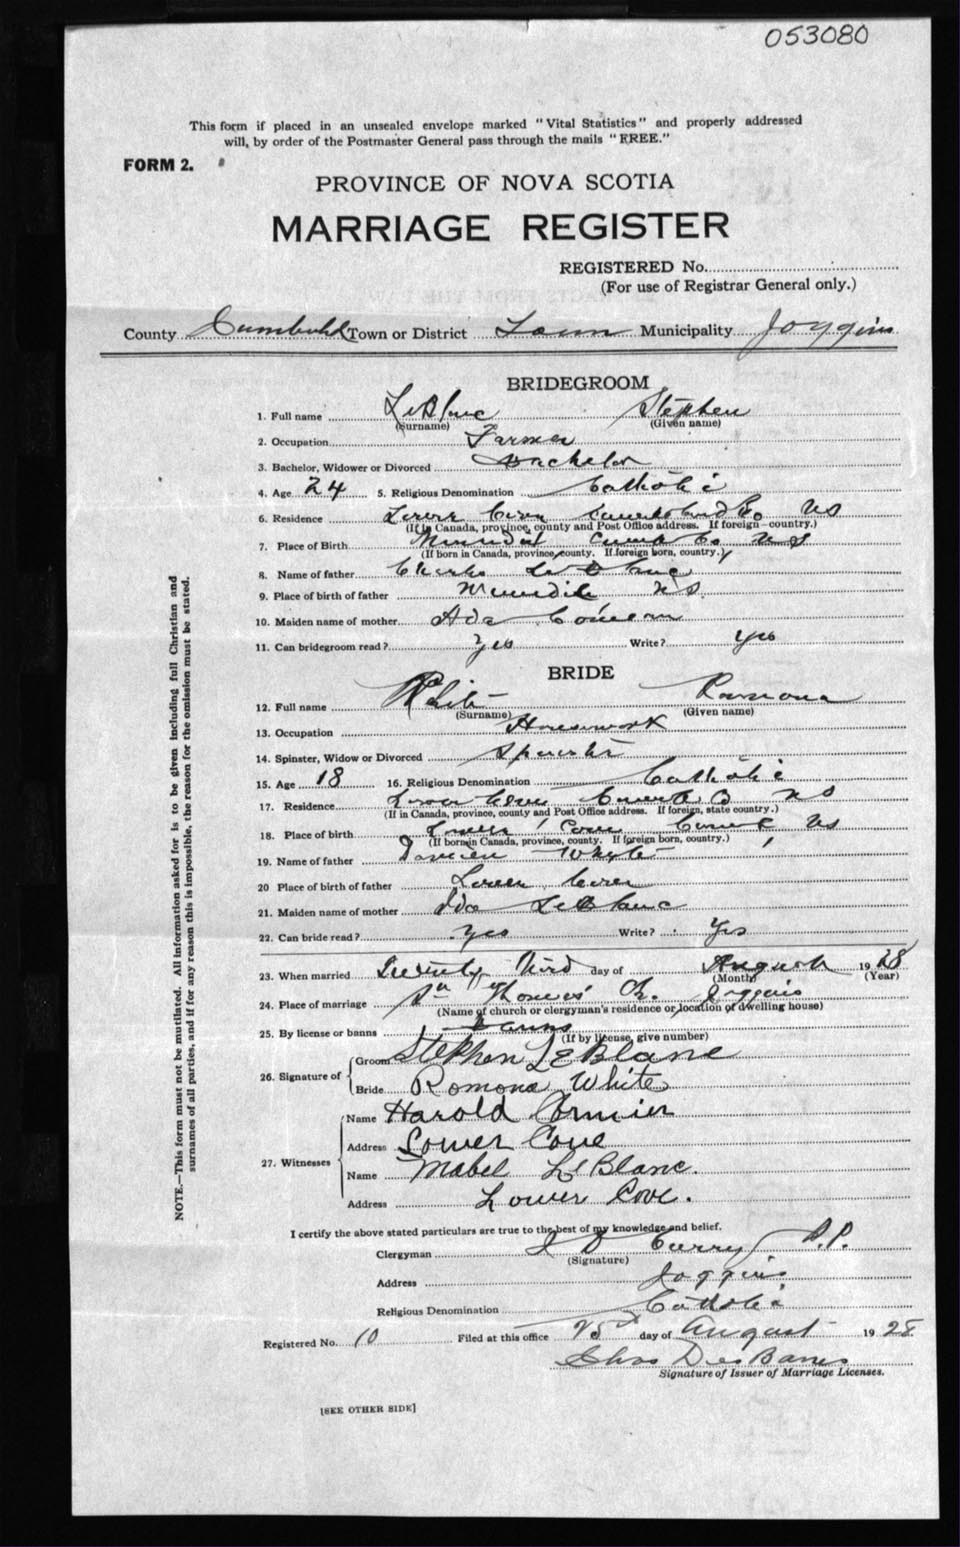 053080
This form if placed in an unsealed envelope marked "Vital Statistics" and properly addressed
will, by order of the Postmaster General pass through the mails "FREE."
FORM 2.
PROVINCE OF NOVA SCOTIA
MARRIAGE REGISTER
REGISTERED No.
(For use of Registrar General only.)
County Town or District Town Municipality Joggins
BRIDEGROOM
1. Full name LeBlanc Stephen
(Surname) (Given name)
2. Occupation Farmer
3. Bachelor, Widower or Divorced Bachelor
4. Age 24 5. Religious Denomination Catholic
6. Residence Lower Cove Cumberland Co NS
(If in Canada, province, county and Post Office address. If foreign-country.)
7. Place of Birth Cumb Co NS
(If born in Canada, province, county. If foreign born, country.)
8. Name of father Charles LeBlanc
9. Place of birth of father NS.
10. Maiden name of mother Ada Comeau
11. Can bridegroom read? Yes Write? Yes
BRIDE
12. Full name White Romona
(Surname) (Given name)
13. Occupation Housework
14. Spinster, Widow or Divorced Spinster
15. Age 18 16. Religious Denomination Catholic
17. Residence Lower Cove Cumb Co NS
(If in Canada, province, county and Post Office address. If foreign, state country.)
18. Place of birth Lower Cove NS
(If born in Canada, province, county. If foreign born, country.)
19. Name of father Whyte
20 Place of birth of father Lower Cove
21. Maiden name of mother Ida LeBlanc
22. Can bride read? Yes Write? Yes
23. When married Twenty third day of August 1928
(Month) (Year)
24. Place of marriage St Thomas' Ch. Joggins
(Name of church or clergyman's residence or location of dwelling house)
25. By license or banns Banns
(If by license, give number)
26. Signature of Groom Stephen LeBlanc
Bride Romona White
27. Witnesses Name Harold Cormier
Address Lower Cove
Name Mabel LeBlanc.
Address Lower Cove.
I certify the above stated particulars are true to the best of my knowledge and belief.
Clergyman Curry P.P.
(Signature)
Address Joggins
Religious Denomination Catholic
Registered No. 10 Filed at this office 25 day of August 1928
Chas DesBarres
Signature of Issuer of Marriage Licenses.
[SEE OTHER SIDE]
NOTE.—This form must not be mutilated. All information asked for is to be given including full Christian and
surnames of all parties, and if for any reason this is impossible, the reason for the omission must be stated.